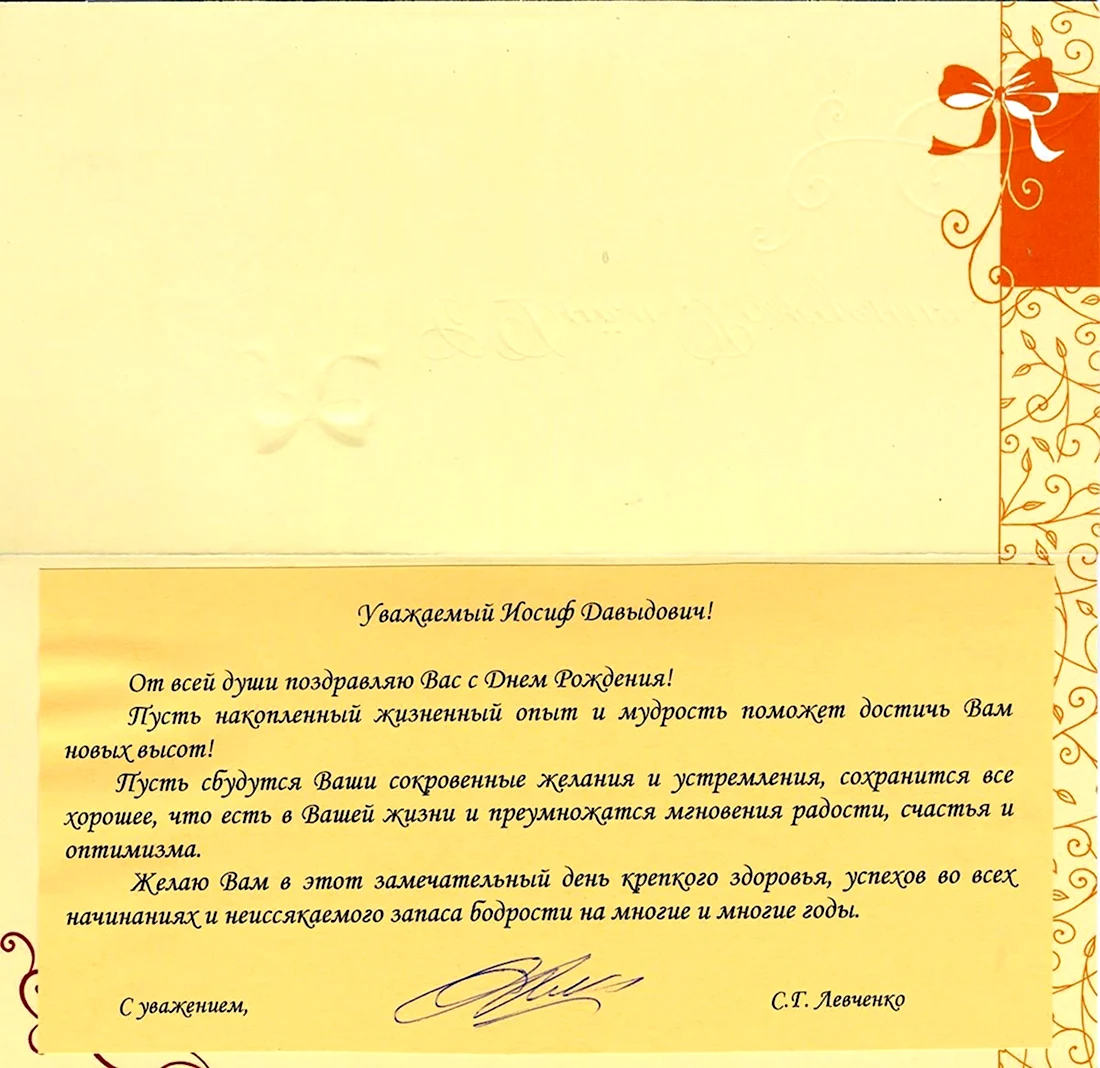 Уважаемый Иосиф Давыдович!
От всей души поздравляю Вас с Днем Рождения!
Пусть накопленный жизненный опыт и мудрость поможет достичь Вам
новых высот!
Пусть сбудутся Ваши сокровенные желания и устремления, сохранится все
хорошее, что есть в Вашей жизни и преумножатся мгновения радости, счастья и
оптимизма.
Желаю Вам в этот замечательный день крепкого здоровья, успехов во всех
начинаниях и неиссякаемого запаса бодрости на многие и многие годы.
С уважением, С.Г. Левченко